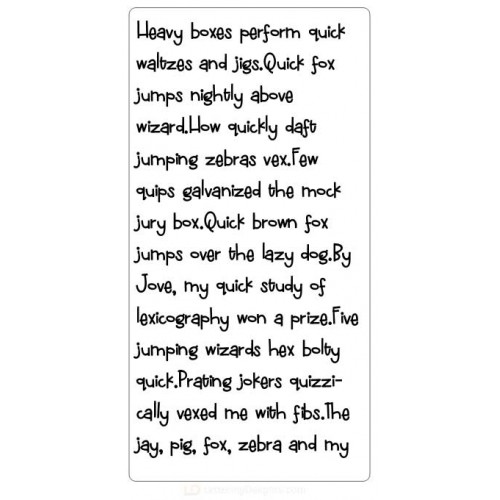 Heavy boxes perform quick
waltzes and jigs.Quick fox
jumps nightly above
wizard.How quickly daft
jumping zebras vex.Few
quips galvanized the mock
jury box.Quick brown fox
jumps over the lazy dog.By
Jove, my quick study of
lexicography won a prize.Five
jumping wizards hex bolty
quick.Prating jokers quizzi-
cally vexed me with fibs.The
jay, pig, fox, zebra and my